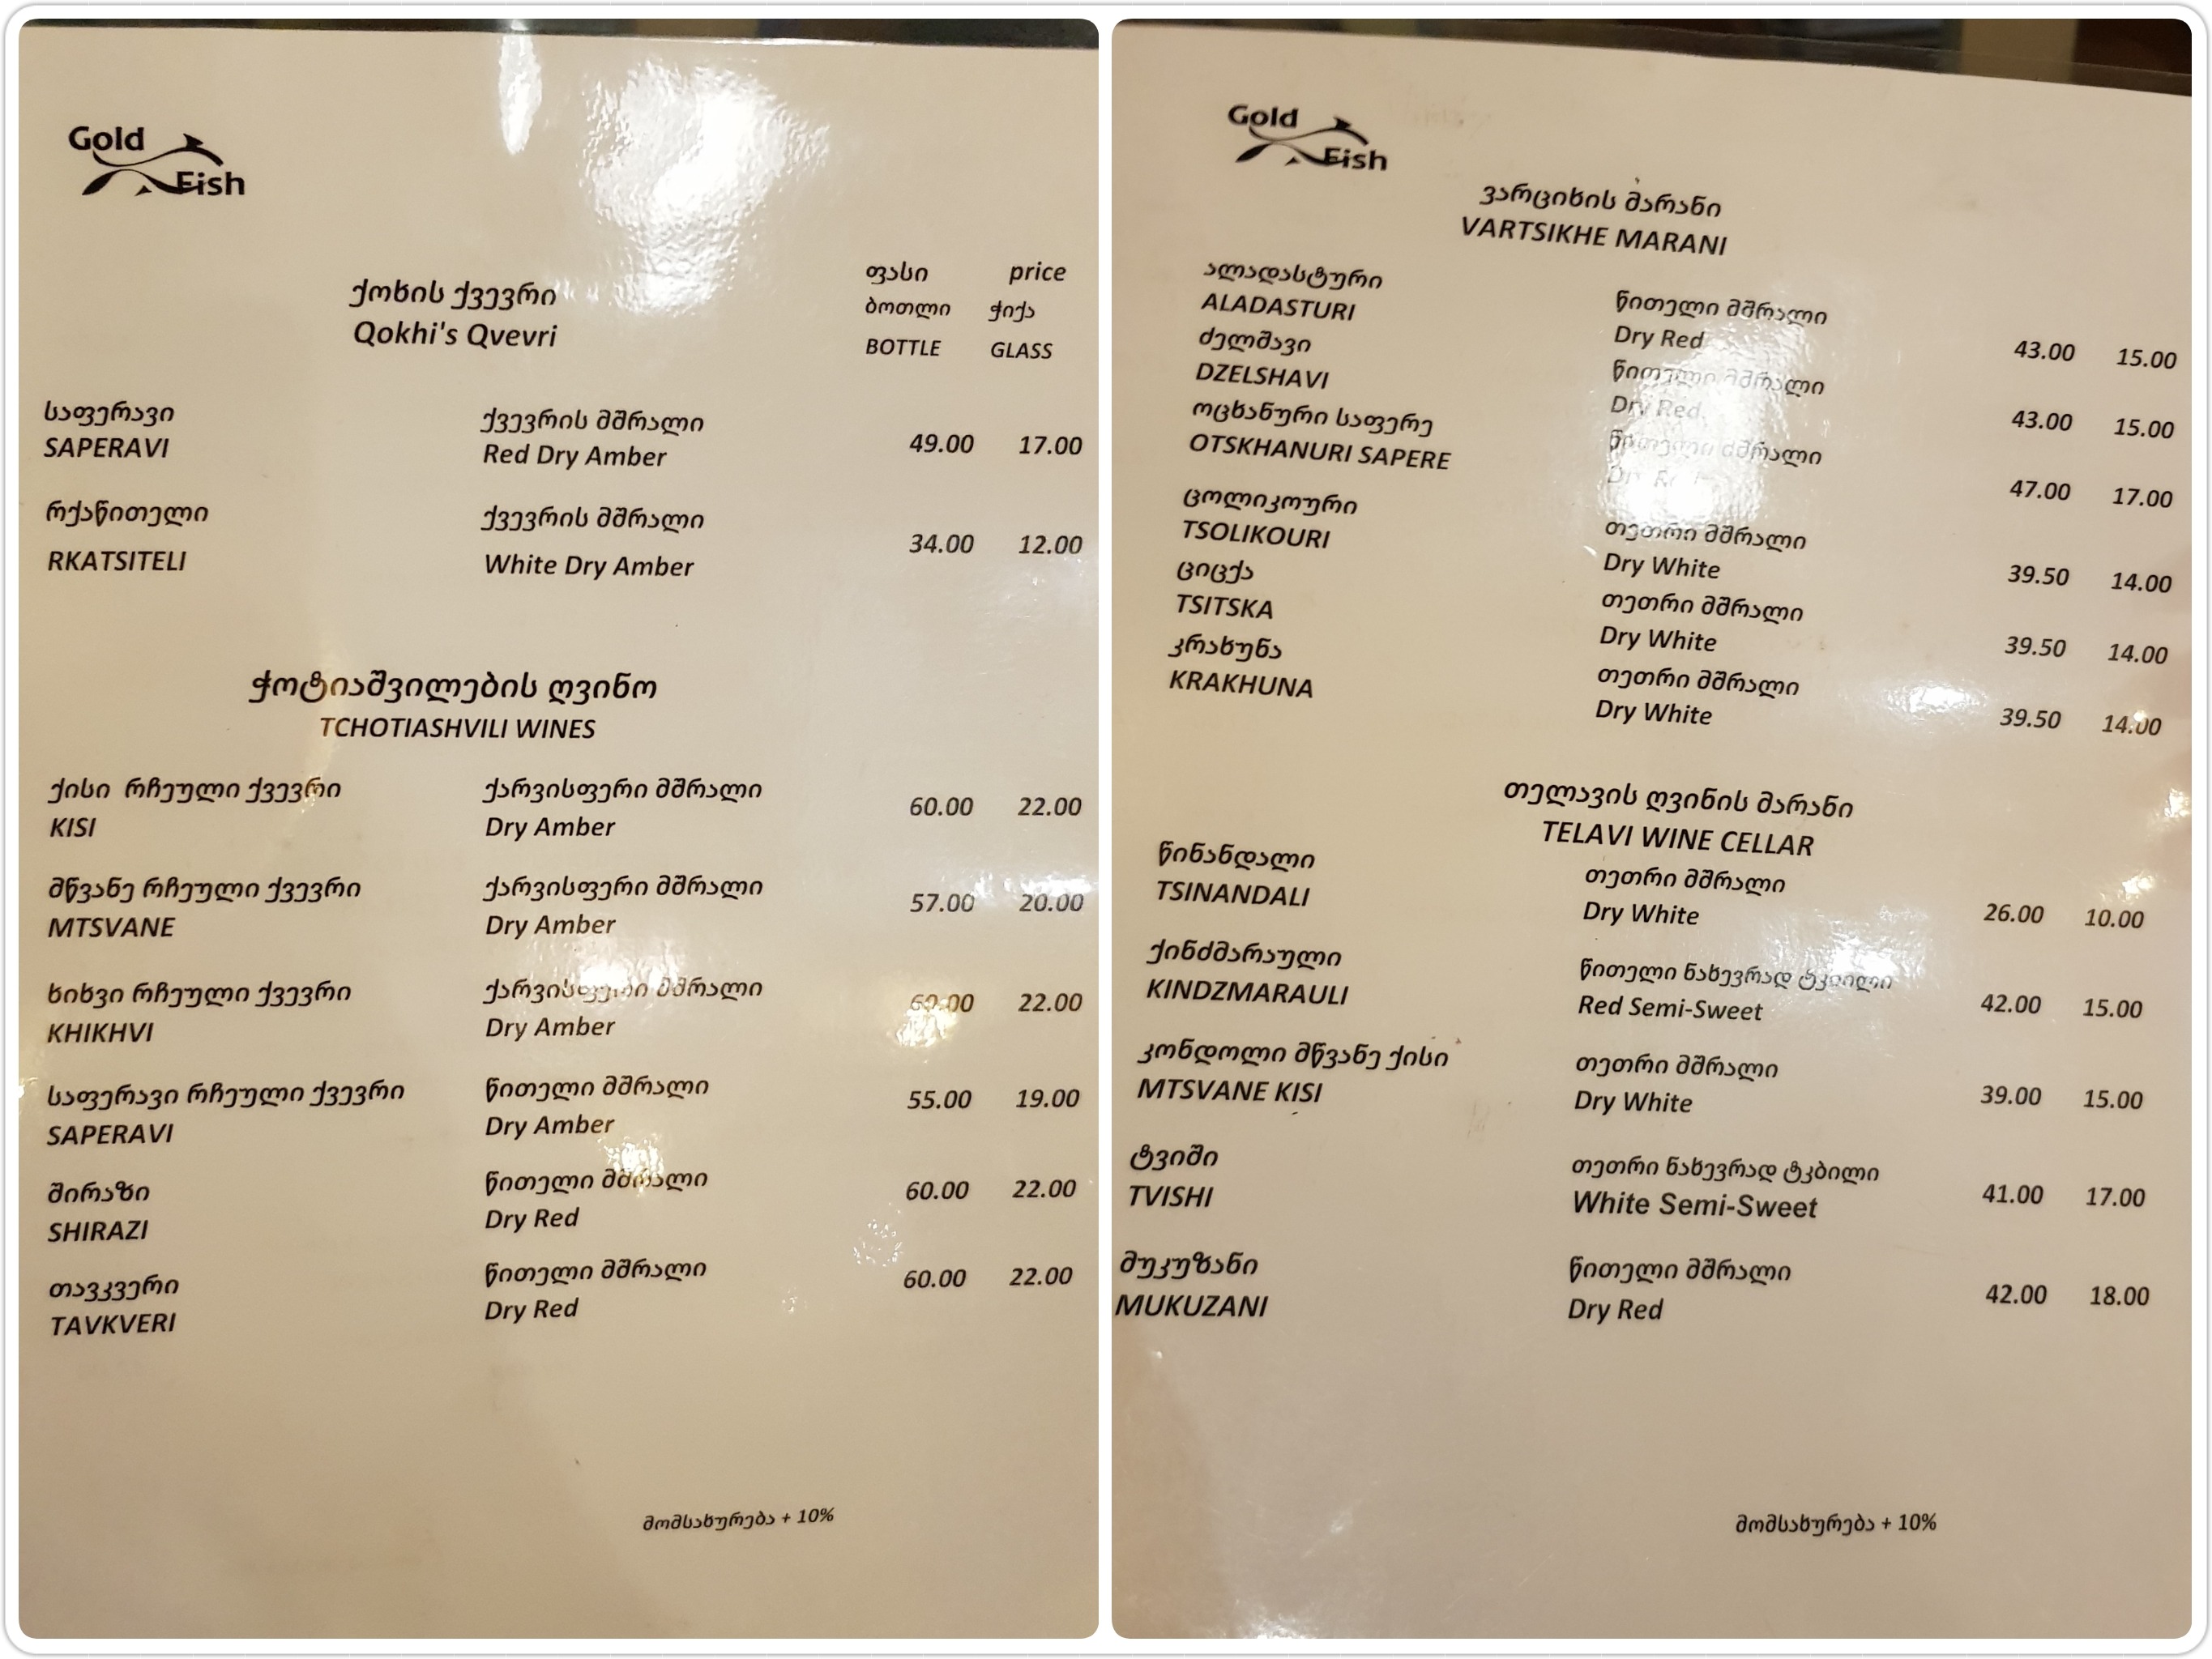 Gold
Fish
ფასი price
ქოხის ქვევრი
ბოთლი ჭიქა
Qokhi's Qvevri
BOTTLE GLASS
საფერავი ქვევრის მშრალი
SAPERAVI Red Dry Amber 49.00 17.00
რქაწითელი ქვევრის მშრალი
RKATSITELI White Dry Amber 34.00 12.00
ჭოტიაშვილების ღვინო
TCHOTIASHVILI WINES
ქისი რჩეული ქვევრი ქარვისფერი მშრალი
KISI Dry Amber 60.00 22.00
მწვანე რჩეული ქვევრი ქარვისფერი მშრალი
MTSVANE Dry Amber 57.00 20.00
ხიხვი რჩეული ქვევრი ქარვისფერი მშრალი
KHIKHVI Dry Amber 60.00 22.00
საფერავი რჩეული ქვევრი წითელი მშრალი
SAPERAVI Dry Amber 55.00 19.00
შირაზი წითელი მშრალი
SHIRAZI Dry Red 60.00 22.00
თავკვერი წითელი მშრალი
TAVKVERI Dry Red 60.00 22.00
მომსახურება + 10%
Gold
Fish
ვარციხის მარანი
VARTSIKHE MARANI
ალადასტური წითელი მშრალი
ALADASTURI Dry Red 43.00 15.00
ძელშავი წითელი მშრალი
DZELSHAVI Dry Red 43.00 15.00
ოცხანური საფერე წითელი მშრალი
OTSKHANURI SAPERE 47.00 17.00
ცოლიკოური თეთრი მშრალი
TSOLIKOURI Dry White 39.50 14.00
ციცქა თეთრი მშრალი
TSITSKA Dry White 39.50 14.00
კრახუნა თეთრი მშრალი
KRAKHUNA Dry White 39.50 14.00
თელავის ღვინის მარანი
TELAVI WINE CELLAR
წინანდალი თეთრი მშრალი
TSINANDALI Dry White 26.00 10.00
ქინძმარაული წითელი ნახევრად ტკბილი
KINDZMARAULI Red Semi-Sweet 42.00 15.00
კონდოლი მწვანე ქისი თეთრი მშრალი
MTSVANE KISI Dry White 39.00 15.00
ტვიში თეთრი ნახევრად ტკბილი
TVISHI White Semi-Sweet 41.00 17.00
მუკუზანი წითელი მშრალი
MUKUZANI Dry Red 42.00 18.00
მომსახურება + 10%